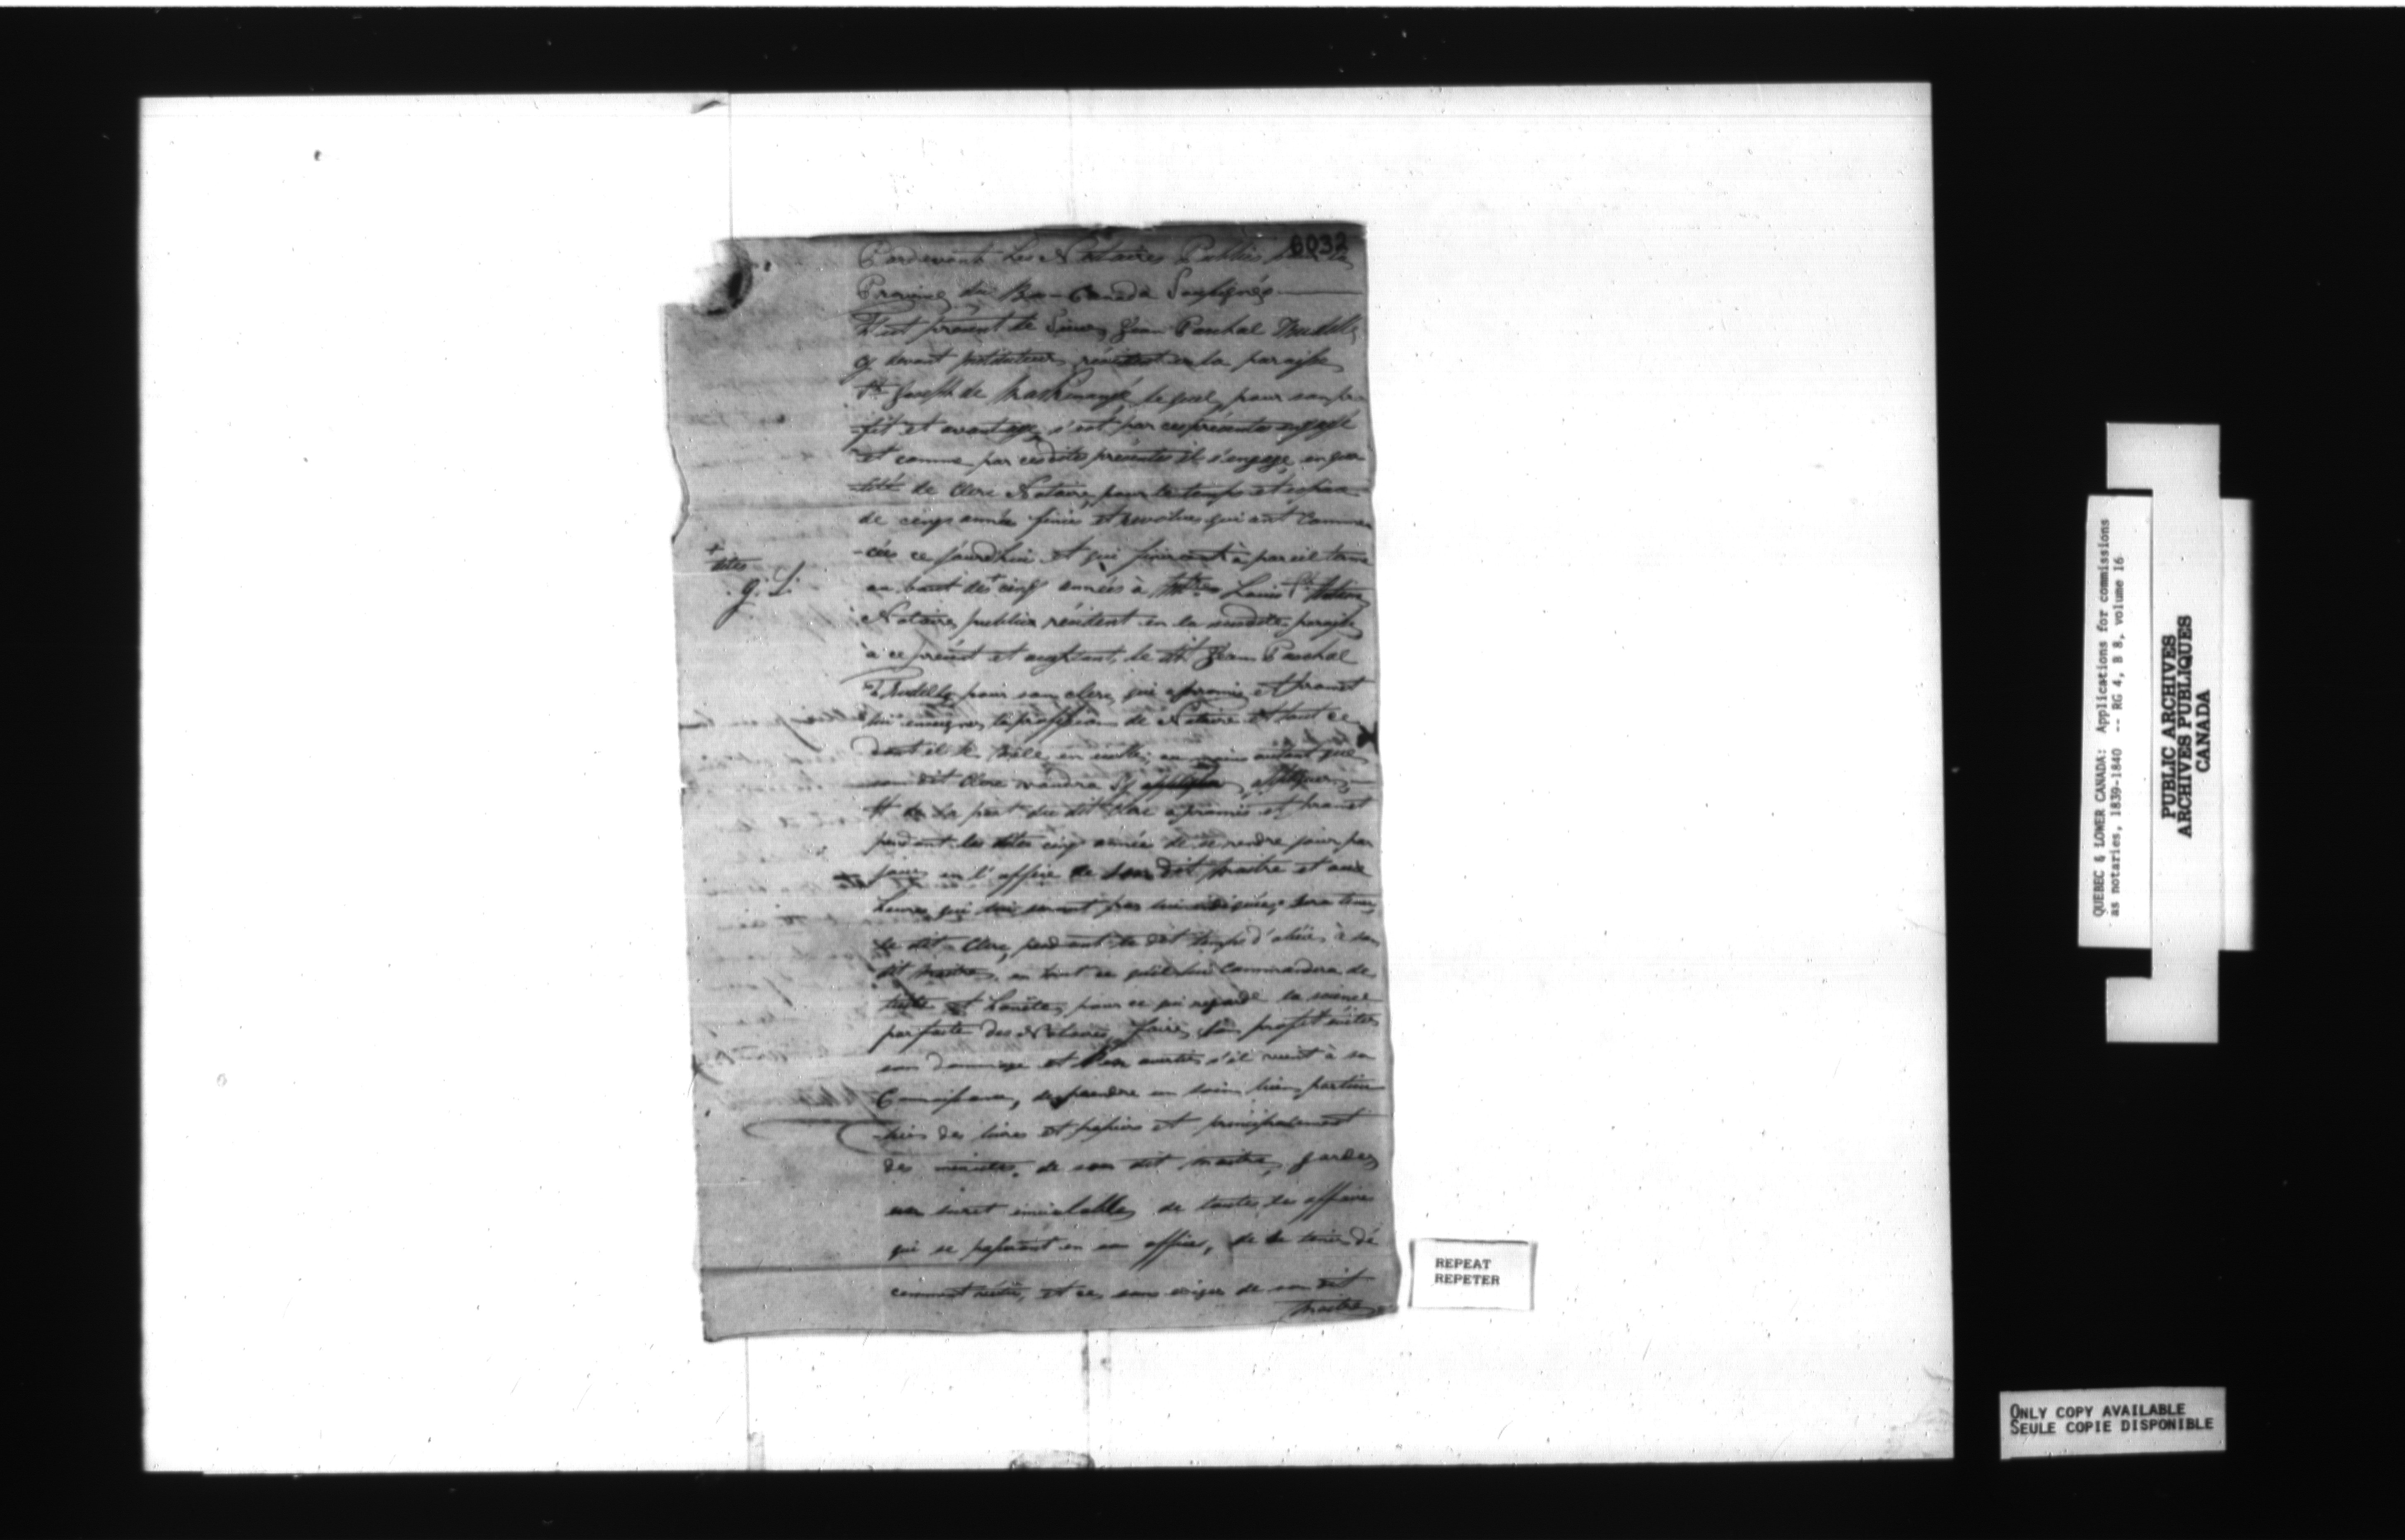 6032
Pardevant Les Notaires Publics
Province du Bas-Canada Soussignés
Fut présent le Sieur Jean Paschal
cy devant instituteur, résident en la paroisse
St Joseph de Maskinongé, lequel, pour son pro
-fit et avantage, s'est par ces présentes engagé
et comme par ces dites présentes il s'engage en qua
-lité de Clerc Notaire, pour le temps et espace
de cinq année finies et revolues qui ont commen
-cées ce jourdhui et qui finiront à pareil terme
au bout des cinq années à Louis
+
dites
g. L.
Notaire publics résident en la susdite paroisse
à ce présent et acceptant, le dit Jean Paschal
pour son clerc, qui a promis et promet
lui enseigner la proffession de Notaire et tout ce
dont il se mêle en icelle; au moins autant que
son dit Clerc voudra s'y appliquer
Et de la part du dit Clerc a promis et promet
pendant les dites cinq année de se rendre jour par
jour en l'office de son dit Maitre et aux
heures qui lui seront par lui indiquées; sera tenu
le dit Clerc, pendant le dit temps d'obéir à son
dit Maitre, en tout ce qu'il lui commandera de
licite et honête, pour ce qui regarde la science
parfaite des Notaires, faire son profit éviter
son dommage et l'en avertir s'il vient à sa
Connaissance, de prendre un soin bien particu
-lier des livres et papiers et principalement
des minutes, de son dit maitre, garder
un secret inviolable, de toutes les affaires
qui se passeront en son office, de se tenir dé
-cemment vêtu, et ce, sans exiger de son dit
Maitre
REPEAT
REPETER
QUEBEC & LOWER CANADA: Applications for commissions
as notaries, 1839-1840 -- RG 4, B 8, volume 16
PUBLIC ARCHIVES
ARCHIVES PUBLIQUES
CANADA
ONLY COPY AVAILABLE
SEULE COPIE DISPONIBLE